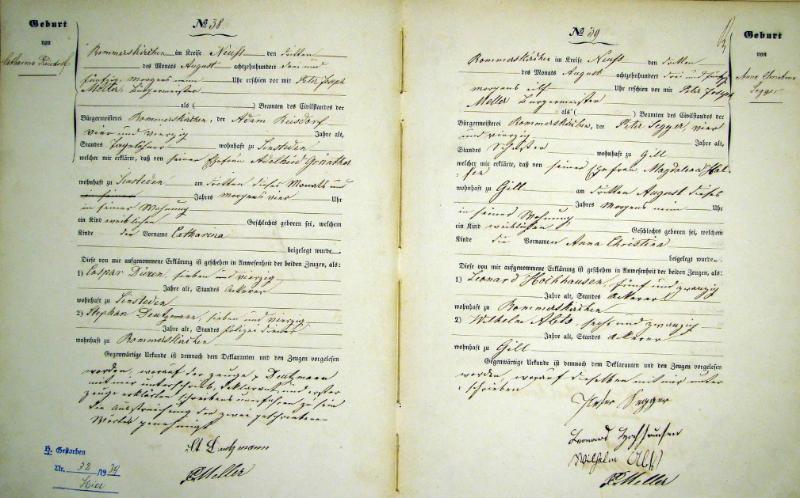 Geburt
von
Catharina Reisdorf
№ 38
Rommerskirchen im Kreise Neuß den dritten
des Monats August achtzehnhundert drei und
fünfzig morgens neun Uhr erschien vor mir Peter Joseph
Möller, Bürgermeister
als ( ) Beamten des Civilstandes der
Bürgermeisterei Rommerskirchen, der Adam Reisdorf
vier und vierzig Jahre alt,
Standes Tagelöhner wohnhaft zu Sinsteden
welcher mir erklärte, daß von seiner Ehefrau Adelheid
wohnhaft zu Sinsteden am dritten dieses Monats und
Jahres morgens vier Uhr
in seiner Wohnung
ein Kind weiblichen Geschlechts geboren sei, welchem
Kinde der Vorname Catharina
beigelegt wurde.
Diese von mir aufgenommene Erklärung ist geschehen in Anwesenheit der beiden Zeugen, als:
1) Caspar Düren, sieben und vierzig
Jahre alt, Standes Ackerer
wohnhaft zu Sinsteden
2) Stephan Deutzmann, sieben und vierzig
Jahre alt, Standes Polizeidiener
wohnhaft zu Rommerskirchen
Gegenwärtige Urkunde ist demnach dem Deklaranten und den Zeugen vorgelesen
worden, worauf der Zeuge Deutzmann
mit mir unterschrieb, Deklarant und erster
Zeuge erklärten Schreibens unerfahren zu sein
die Ausstreichung der zwei geschriebenen
Wörter genehmigt
P. Möller
Gestorben
Nr. 32 /1939
Hier
№ 39
Geburt
von
Anna Christina
Segger
Rommerskirchen im Kreise Neuß den dritten
des Monats August achtzehnhundert drei und fünfzig
morgens elf Uhr erschien vor mir Peter Joseph
Möller Bürgermeister
als ( ) Beamten des Civilstandes der
Bürgermeisterei Rommerskirchen, der Peter Segger, vier
und vierzig Jahre alt,
Standes wohnhaft zu Gill
welcher mir erklärte, daß von seiner Ehefrau Magdalena
wohnhaft zu Gill am dritten August dieses
Jahres Morgens neun Uhr
in seiner Wohnung
ein Kind weiblichen Geschlechts geboren sei, welchem
Kinde die Vornamen Anna Christina
beigelegt wurde.
Diese von mir aufgenommene Erklärung ist geschehen in Anwesenheit der beiden Zeugen, als:
1) Leonard Hochhausen, fünf und zwanzig
Jahre alt, Standes Ackerer
wohnhaft zu Rommerskirchen
2) Wilhelm sechs und zwanzig
Jahre alt, Standes Ackerer
wohnhaft zu Gill
Gegenwärtige Urkunde ist demnach dem Deklaranten und den Zeugen vorgelesen
worden, worauf dieselben mit mir unter
schrieben
Peter Segger
Leonard Hochhausen
Wilhelm
P. Möller